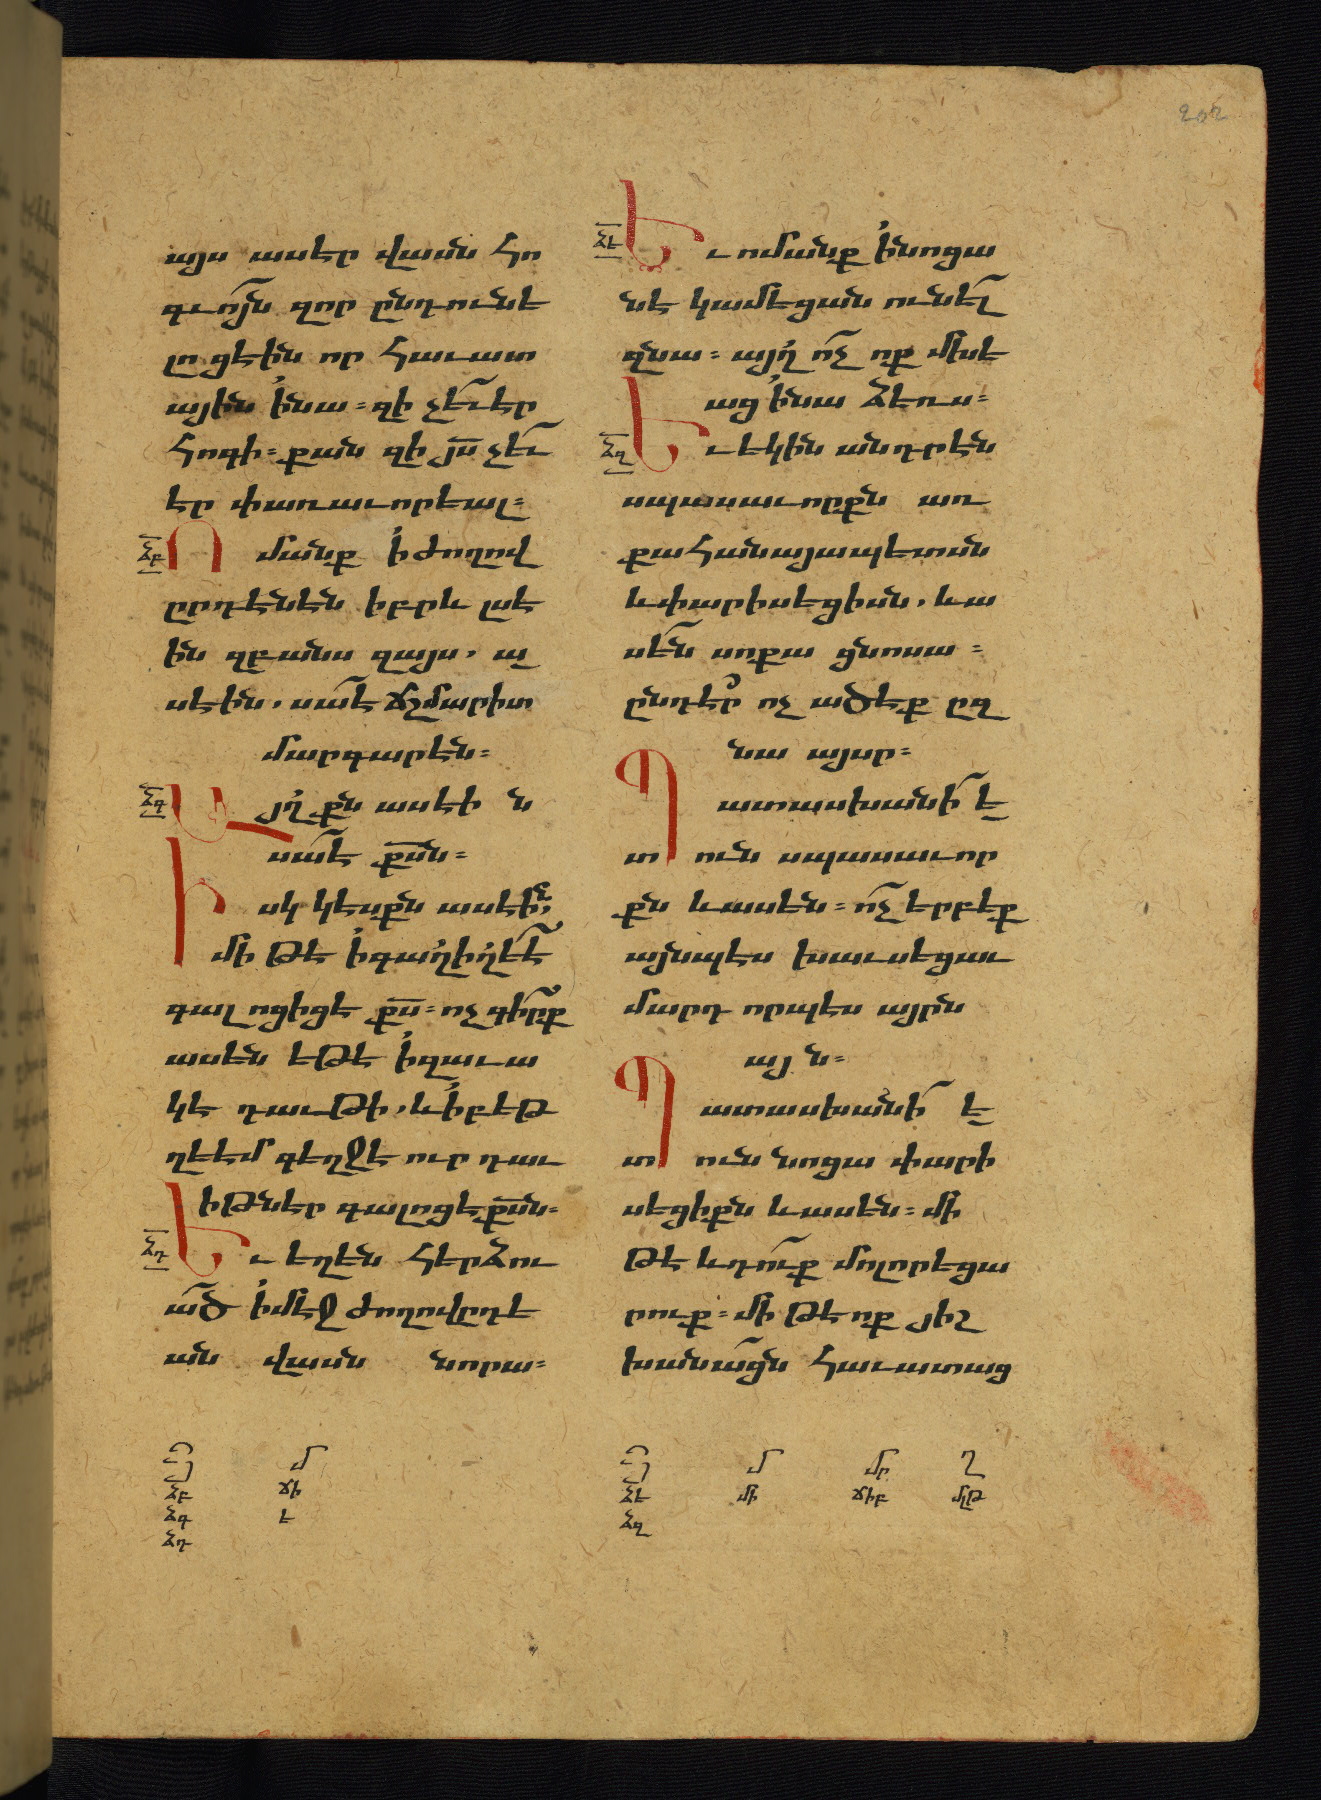 202
այս ասէր վասն հո
գւոյն զոր ընդունե
լոցէին որ հաւատ
ային ի նա։ զի չեւ էր
հոգի։ քանզի յս̅ չեւ
էր փառաւորեալ։
ՃԲ
Ոմանք ի ժողով
ըրդենէն իբրև լսէ
ին զբանս զայս, ա
սէին, սա է ճշմարիտ
մարգարէն։
ՃԳ
Այլ քն ասէին
սա է քս̅ն։
Իսկ կէսքն ասէին,
մի թէ ի գալիլեէ
գալոցիցէ քս̅։ ոչ գիրք
ասեն եթէ ի զաւա
կէ դաւթի, և ի բեթ
ղեէմ գեղջէ ուր դաւ
իթն էր գալոցէ քս̅ն։
ՃԴ
Եւ եղեն հերձու
ած ի մէջ ժողովրդե
ան վասն նորա։
ՃԵ
Եւ ոմանք ի նոցա
նէ կամեցան ունել
զնա։ այլ ոչ ոք մխե
աց ի նա ձեռս։
ՃԶ
Եւ եկին անդրէն
սպասաւորքն առ
քահանայապետսն
և փարիսեցիսն, և ա
սեն սոքա ցնոսա։
ընդէր ոչ ածէք ըզ
նա այսր։
Պատասխանի ե
տուն սպասաւոր
քն և ասեն։ ոչ երբէք
այնպէս խաւսեցաւ
մարդ որպէս այրն
այն։
Պատասխանի ե
տուն նոցա փարի
սեցիքն և ասեն։ մի
թէ և դուք մոլորեցա
րուք։ մի թէ ոք յիշ
խանացն հաւատաց
Յ Մ
ՃԲ ՃԻ
ՃԳ Է
ՃԴ
Յ Մ ՄՐ Ղ
ՃԵ ՄԻ ՃԻԲ ՄԼԹ
ՃԶ